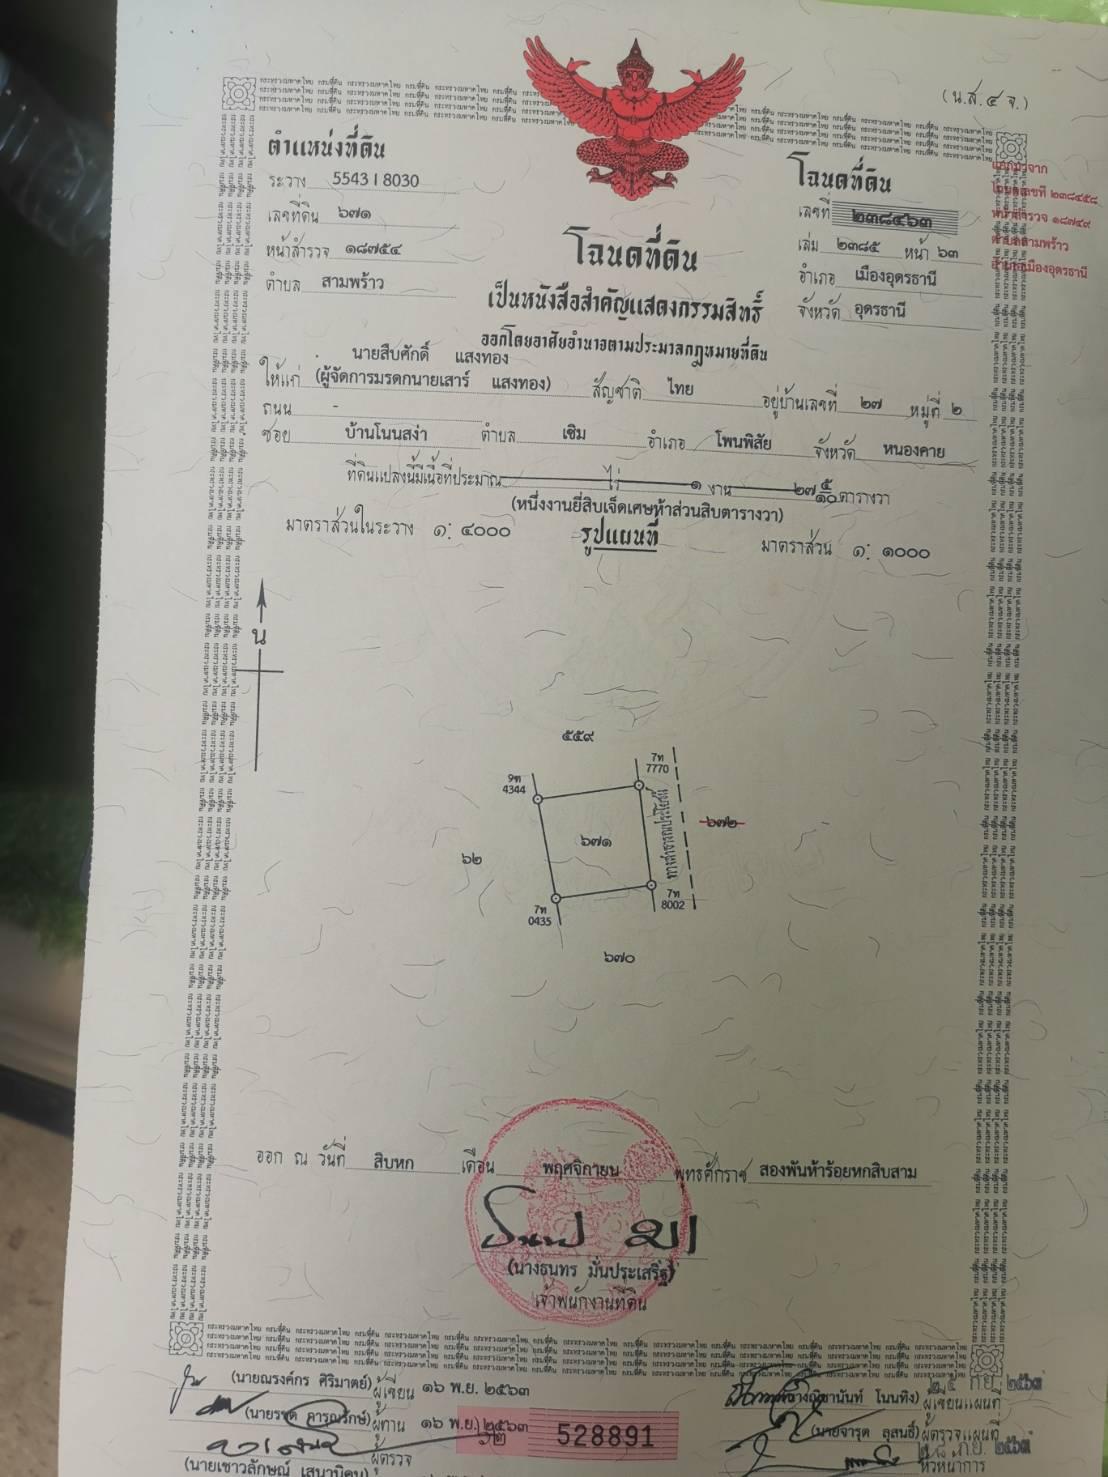 (น.ส.๔ จ.)
ตำแหน่งที่ดิน
ระวาง 5543 I 8030
เลขที่ดิน ๖๗๑
หน้าสำรวจ ๑๘๗๕๔
ตำบล สามพร้าว
โฉนดที่ดิน
เลขที่ ๒๓๘๔๖๓
เล่ม ๒๓๘๕ หน้า ๖๓
อำเภอ เมืองอุดรธานี
จังหวัด อุดรธานี
โฉนดเลขที่ ๒๓๘๔๕๘
หน้าสำรวจ ๑๘๗๔๙
ตำบลสามพร้าว
อำเภอเมืองอุดรธานี
โฉนดที่ดิน
เป็นหนังสือสำคัญแสดงกรรมสิทธิ์
ออกโดยอาศัยอำนาจตามประมวลกฎหมายที่ดิน
นายสืบศักดิ์ แสงทอง
ให้แก่ (ผู้จัดการมรดกนายเสาร์ แสงทอง) สัญชาติ ไทย อยู่บ้านเลขที่ ๒๗ หมู่ที่ ๒
ถนน -
ซอย บ้านโนนสง่า ตำบล เซิม อำเภอ โพนพิสัย จังหวัด หนองคาย
ที่ดินแปลงนี้มีเนื้อที่ประมาณ ไร่ ๑ งาน ๒๗ ๕/๑๐ ตารางวา
(หนึ่งงานยี่สิบเจ็ดเศษห้าส่วนสิบตารางวา)
มาตราส่วนในระวาง ๑: ๔๐๐๐ รูปแผนที่ มาตราส่วน ๑: ๑๐๐๐
น
๕๕๙
9ท
4344
7ท
7770
๖๗๑
ทางสาธารณประโยชน์
๖๗๒
๖๒
7ท
0435
7ท
8002
๖๗๐
ออก ณ วันที่ สิบหก เดือน พฤศจิกายน พุทธศักราช สองพันห้าร้อยหกสิบสาม
(นางธนทร มั่นประเสริฐ)
เจ้าพนักงานที่ดิน
(นายณรงค์กร ศิริมาตย์) ผู้เขียน ๑๖ พ.ย. ๒๕๖๓
ผู้ทาน ๑๖ พ.ย. ๒๕๖๓
ผู้ตรวจ
528891
โนนทิง) ผู้เขียนแผนที่
(นายจารุต ลุสนธิ์) ผู้ตรวจแผนที่
หัวหน้าการ